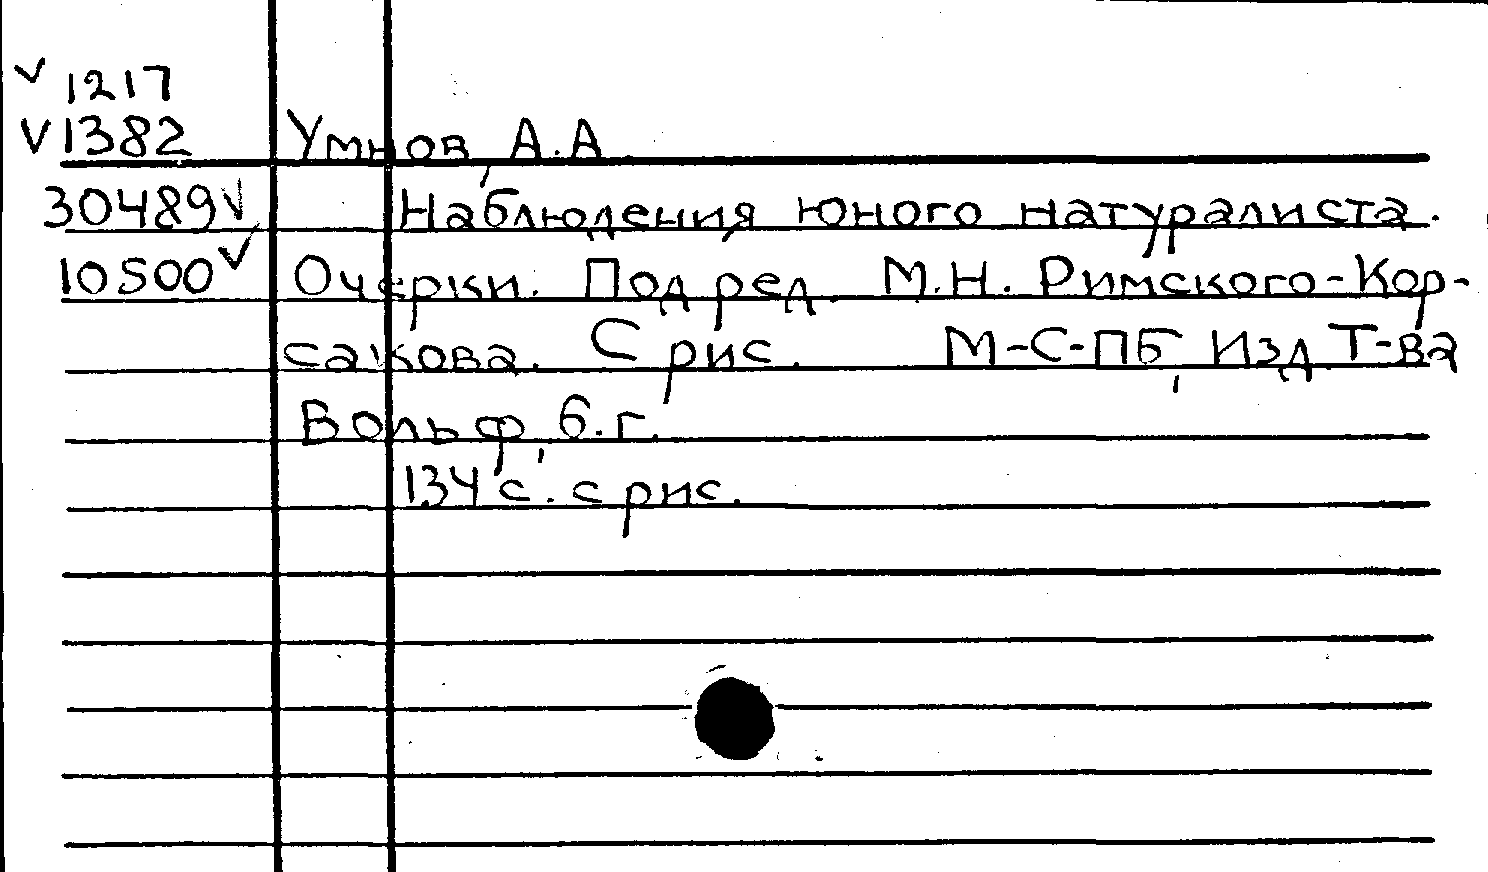 ✓ 1217
✓ 1382 Умнов, А.А.
30489 ✓ Наблюдения юного натуралиста.
10500 ✓ Очерки. Под ред. М.Н. Римского-Кор-
сакова. С рис. М-С-ПБ, Изд. Т-ва
Вольф, б.г.
134 с. с рис.